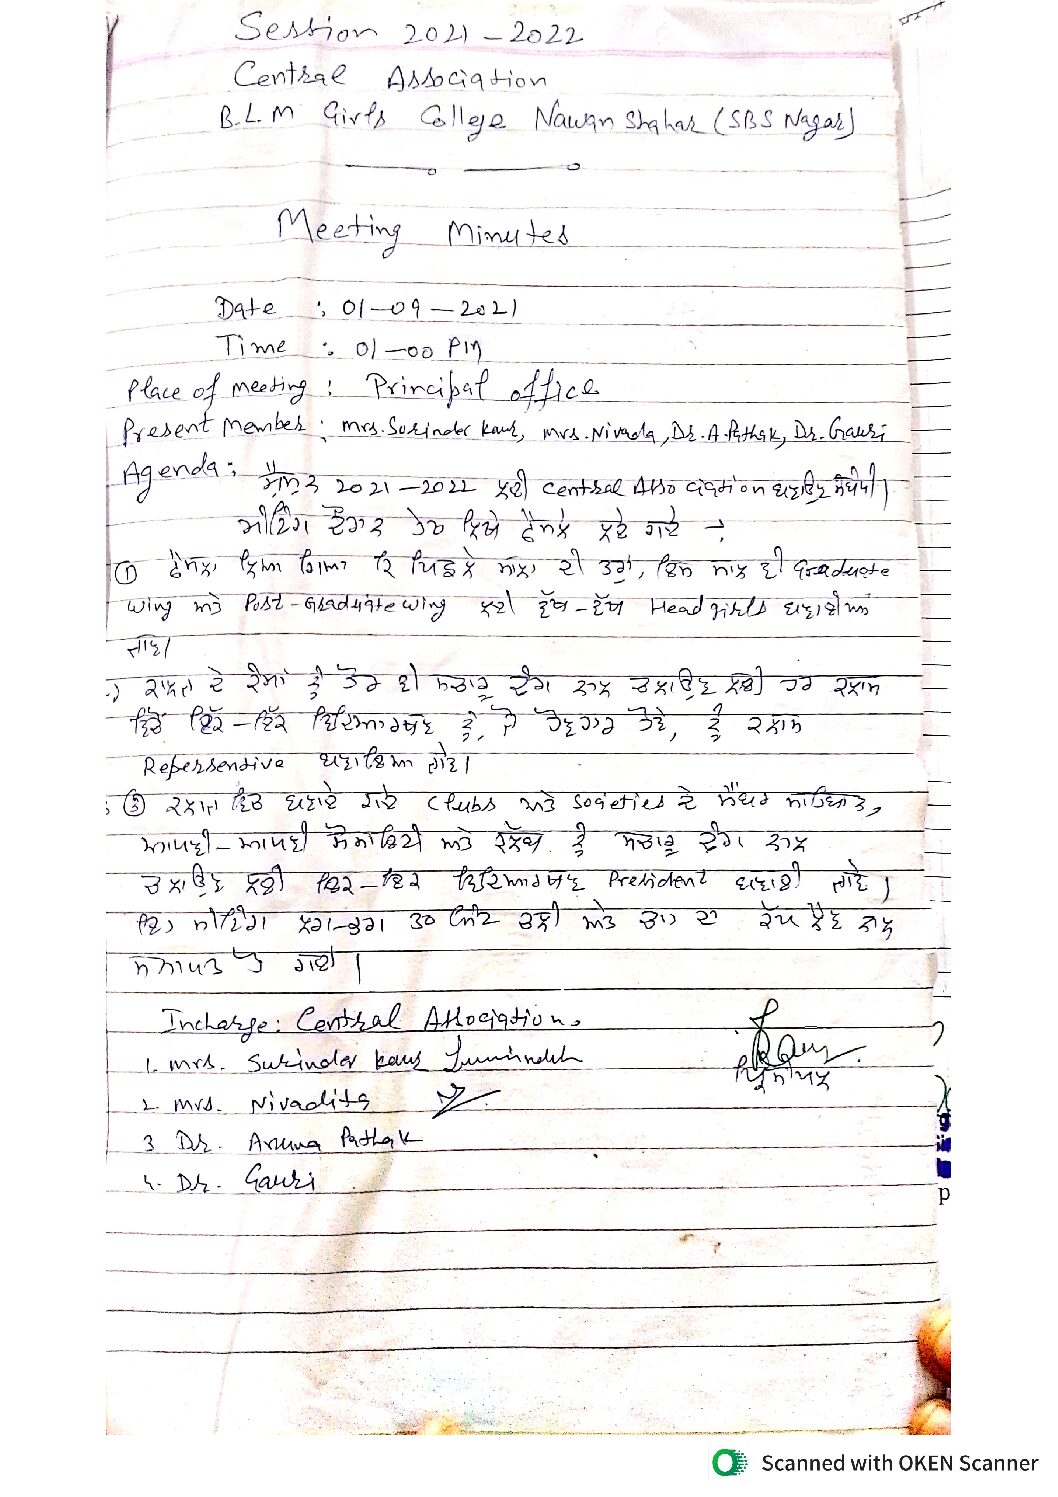 Session 2021-2022
Central Association
B.L.M Girls College Nawanshahar (SBS Nagar)
Meeting Minutes
Date : 01-09-2021
Time : 01-00 PM
Place of meeting : Principal office
Present Member : Mrs. Surinder Kaur, Mrs. Nivada, Dr. A. Pathak, Dr. Gauri
Agenda : ਸ਼ੈਸ਼ਨ 2021-2022 ਲਈ Central Association ਬਣਾਉਣ ਸੰਬੰਧੀ।
ਮੀਟਿੰਗ ਦੌਰਾਨ ਹੇਠ ਲਿਖੇ ਫੈਸਲੇ ਲਏ ਗਏ →
① ਫੈਸਲਾ ਲਿਆ ਗਿਆ ਕਿ ਪਿਛਲੇ ਸਾਲਾਂ ਦੀ ਤਰ੍ਹਾਂ, ਇਸ ਸਾਲ ਵੀ Graduate
wing ਅਤੇ Post-Graduate wing ਲਈ ਵੱਖ-ਵੱਖ Headgirls ਬਣਾਈਆਂ
ਜਾਣ।
ਕਾਲਜ ਦੇ ਕੰਮਾਂ ਨੂੰ ਹੋਰ ਵੀ ਸਚਾਰੂ ਢੰਗ ਨਾਲ ਚਲਾਉਣ ਲਈ ਹਰ ਕਲਾਸ
ਵਿੱਚੋਂ ਇੱਕ-ਇੱਕ ਵਿਦਿਆਰਥਣ ਨੂੰ, ਜੋ ਹੋਣਹਾਰ ਹੋਵੇ, ਨੂੰ ਕਲਾਸ
Repersentive ਬਣਾਇਆ ਜਾਵੇ।
③ ਕਾਲਜ ਵਿੱਚ ਬਣਾਏ ਗਏ Clubs ਅਤੇ Societies ਦੇ ਮੈਂਬਰ ਸਾਹਿਬਾਨ,
ਆਪਣੀ-ਆਪਣੀ ਸੋਸਾਇਟੀ ਅਤੇ ਕਲੱਬ ਨੂੰ ਸਚਾਰੂ ਢੰਗ ਨਾਲ
ਚਲਾਉਣ ਲਈ ਇਕ-ਇਕ ਵਿਦਿਆਰਥਣ President ਬਣਾਈ ਜਾਵੇ।
ਇਹ ਮੀਟਿੰਗ ਲਗ-ਭਗ 30 ਮਿੰਟ ਚਲੀ ਅਤੇ ਚਾਹ ਦਾ ਕੱਪ ਲੈਣ ਨਾਲ
ਸਮਾਪਤ ਹੋ ਗਈ।
Incharge : Central Association.
1. Mrs. Surinder Kaur
2. Mrs. Nivadita
3 Dr. Aruna Pathak
4. Dr. Gauri
ਪ੍ਰਿੰਸੀਪਲ
Scanned with OKEN Scanner